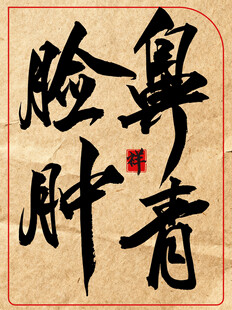 鼻青
脸肿
祥